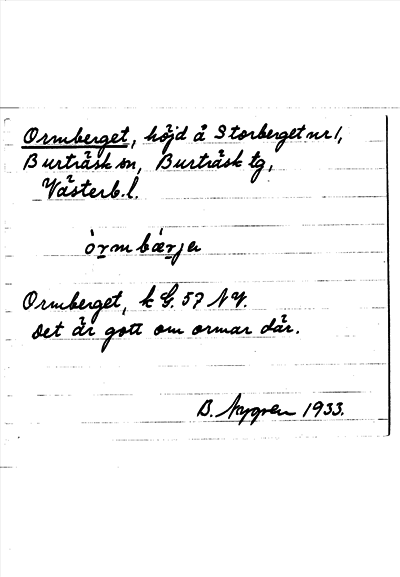 Ormberget, höjd å Storberget nr 1,
Burträsk sn, Burträsk tg,
Västerb. l.
òrmbærje
Ormberget, k G. 57 NV.
Det är gott om ormar där.
B. Nygren 1933.